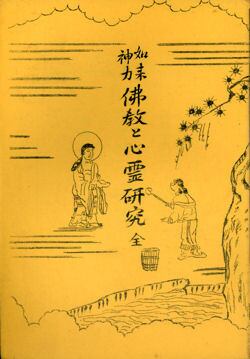 如来神力
佛教と心霊研究 全